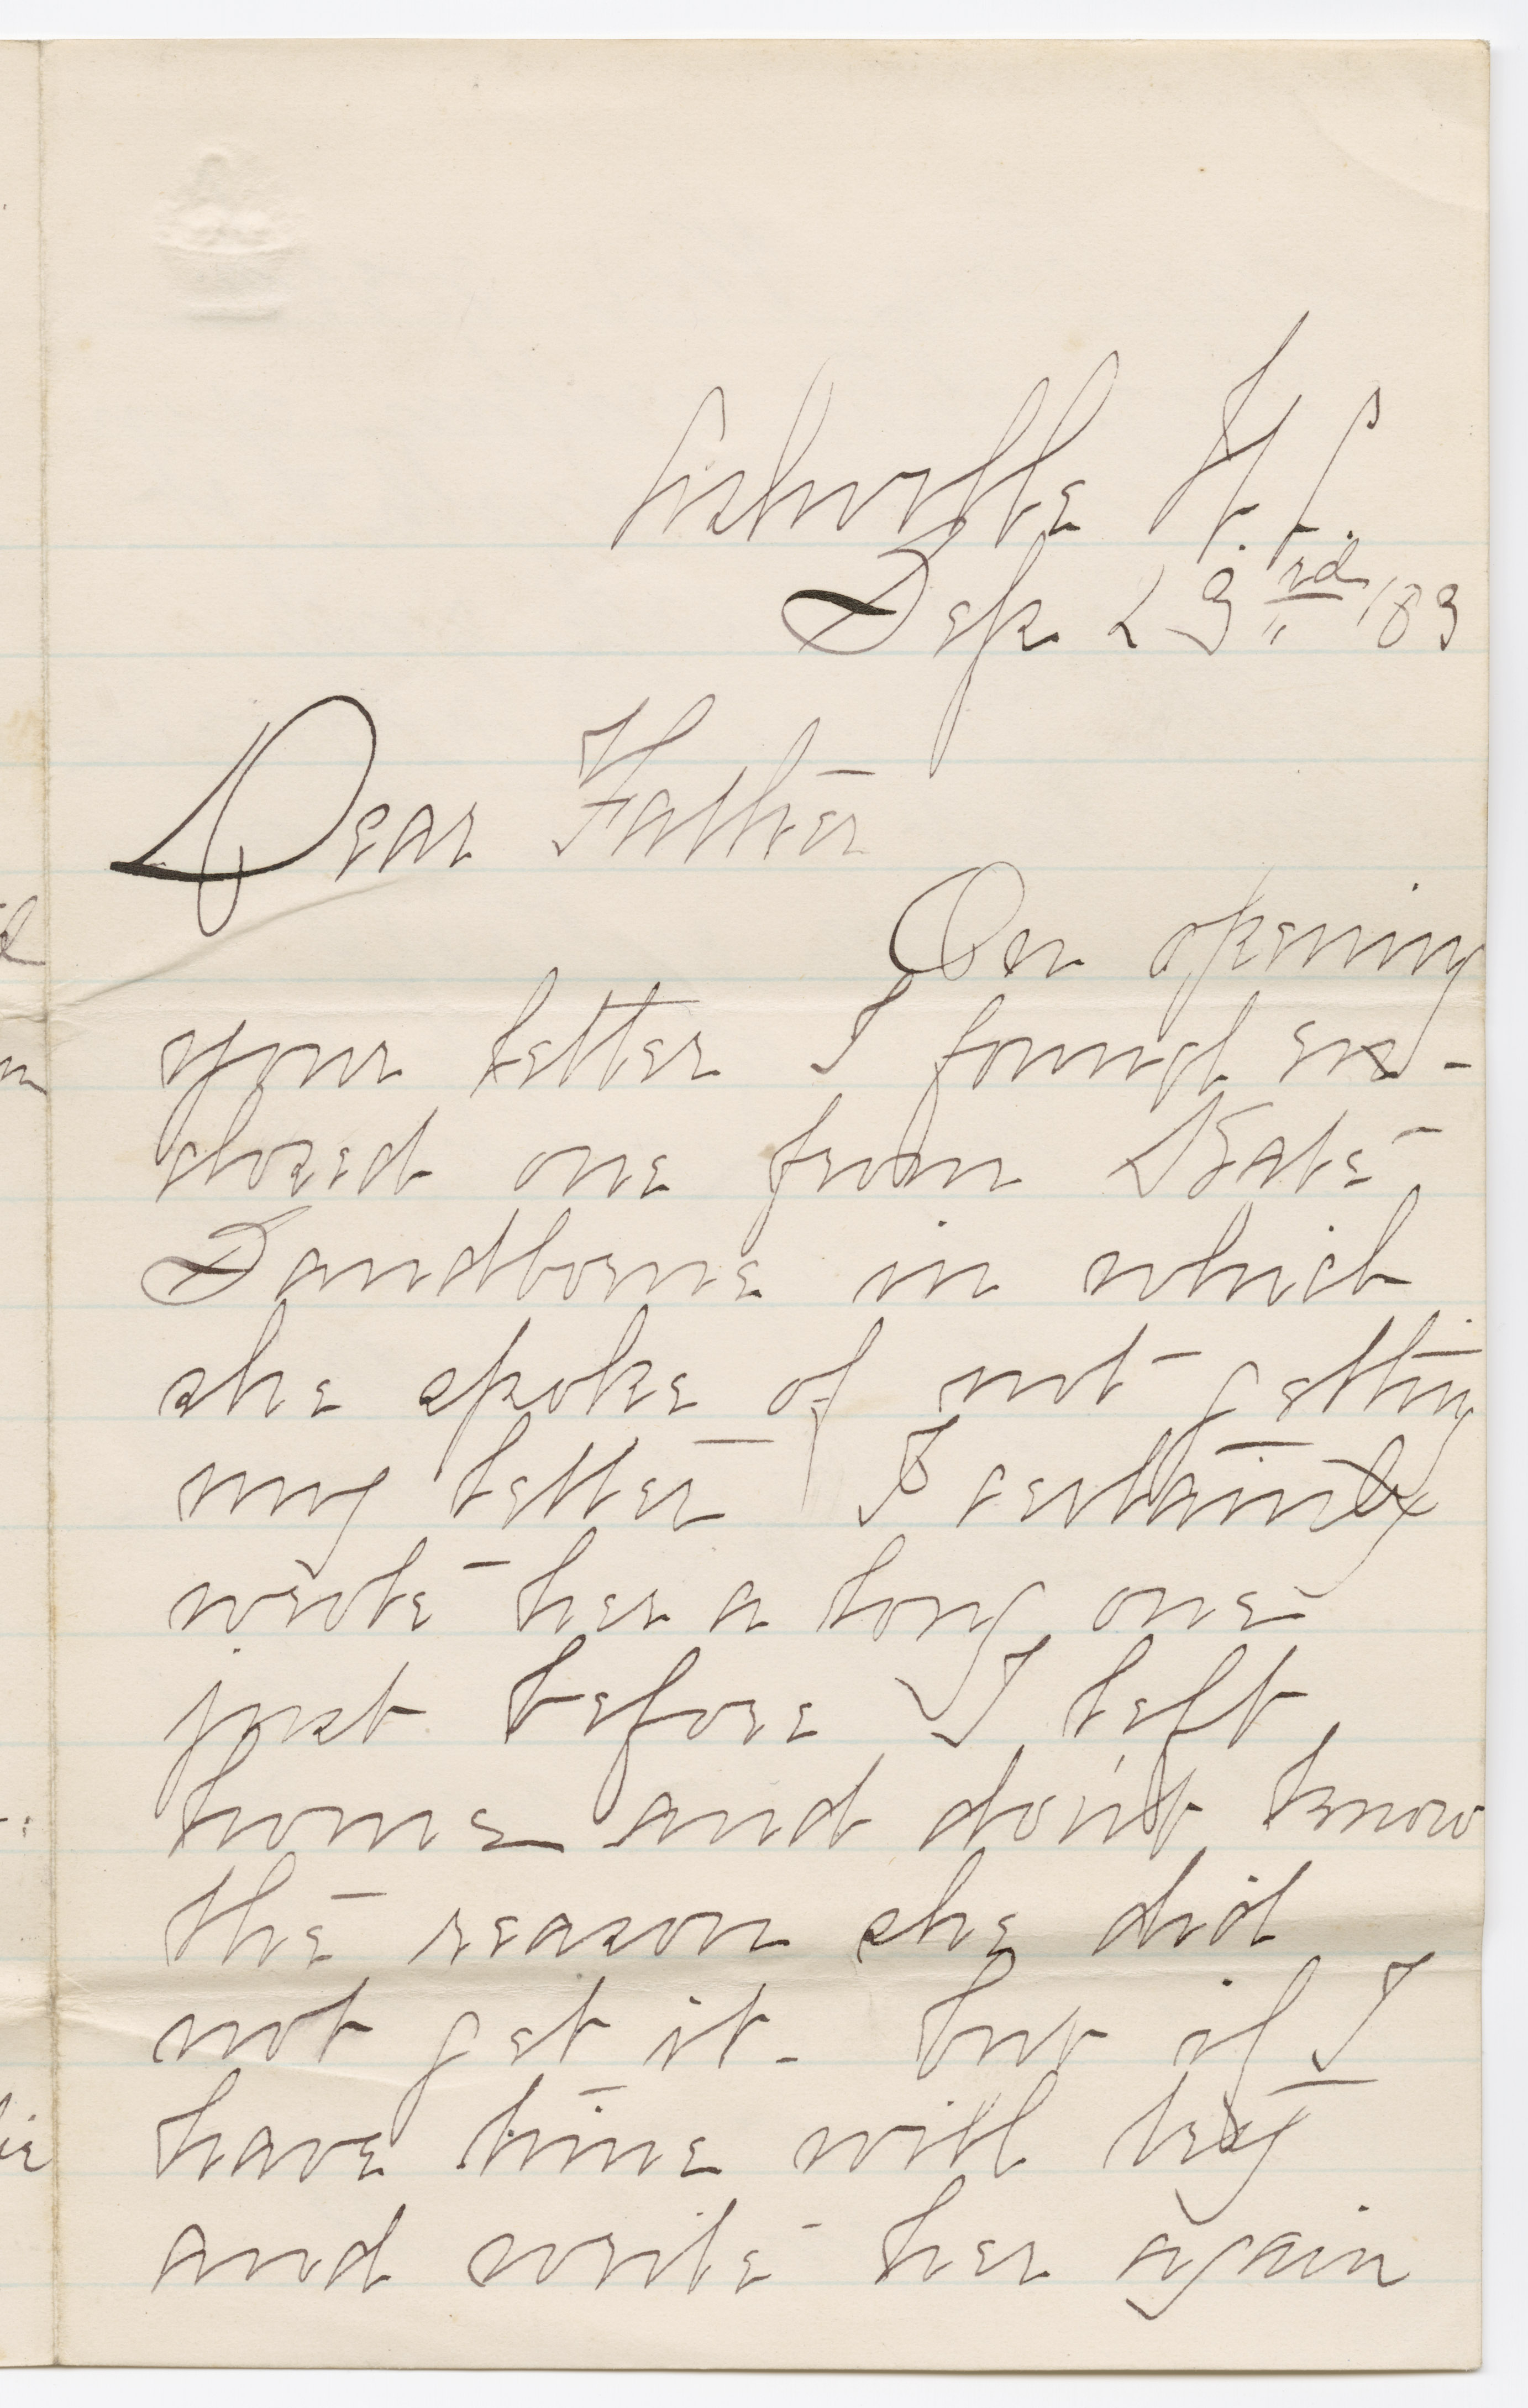 Sep 23rd /83
Dear Father
On opening
your letter I found en-
closed one from Kate
Sandborne in which
she spoke of not getting
my letter I certainly
wrote her a long one
just before I left
home and don't know
the reason she did
not get it - but if I
have time will try
and write her again